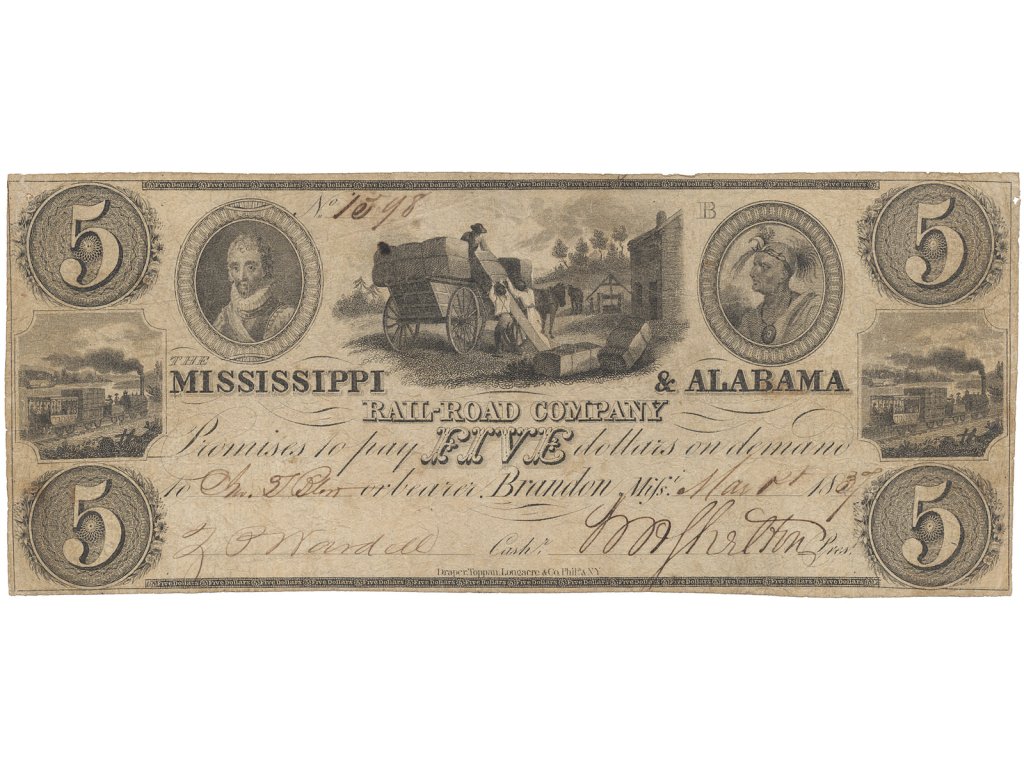 Five Dollars Five Dollars Five Dollars Five Dollars Five Dollars Five Dollars Five Dollars Five Dollars Five Dollars Five Dollars Five Dollars Five Dollars
5 5
No 1598 B
THE
MISSISSIPPI & ALABAMA
RAIL-ROAD COMPANY
Promises to pay FIVE dollars on demand
to or bearer. Brandon Miss. May 1st 1837
5 5
Cashr. Shelton Pres.
Draper, Toppan, Longacre & Co. Phila. & N.Y.
Five Dollars Five Dollars Five Dollars Five Dollars Five Dollars Five Dollars Five Dollars Five Dollars Five Dollars Five Dollars Five Dollars Five Dollars